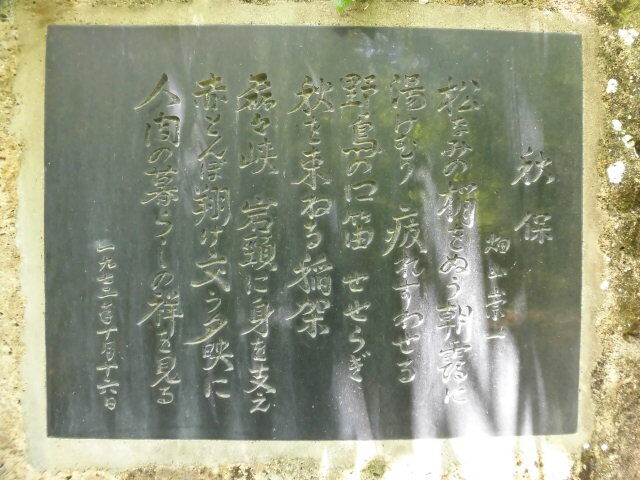 秋保
畑山栄一
松なみの梢をぬう朝霞に
湯けむり 疲れすわせる
野鳥の口笛 せせらぎ
秋を束ねる稲架
磊々峡 岩頭に身を支え
赤とんぼ翔け交う夕映に
人間の暮らしの祥を見る
一九七三年十月十六日